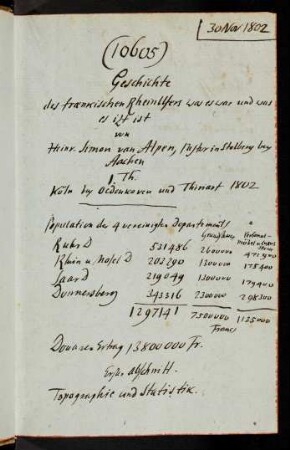 30 Nov 1802
(10605)
Geschichte
des fraenkischen Rheinufers was es war und was
es izt ist
von
Heinr. Simon van Alpen, Pastor in Stolberg bey
Aachen
I. Th.
Köln bey Oedenkoven und Thiriart 1802
Population der 4 vereinigten Departements
Ruhr D 531486 2600000 471900
Rhein u. Mosel D 203290 1300000 175400
Saar D 219049 1300000 179400
Donnersberg 343316 2300000 298300
1297141 7500000 1125000
Francs
Douanen Ertrag 13800000 Fr.
Erster Abschnitt.
Topographie und Statistik.